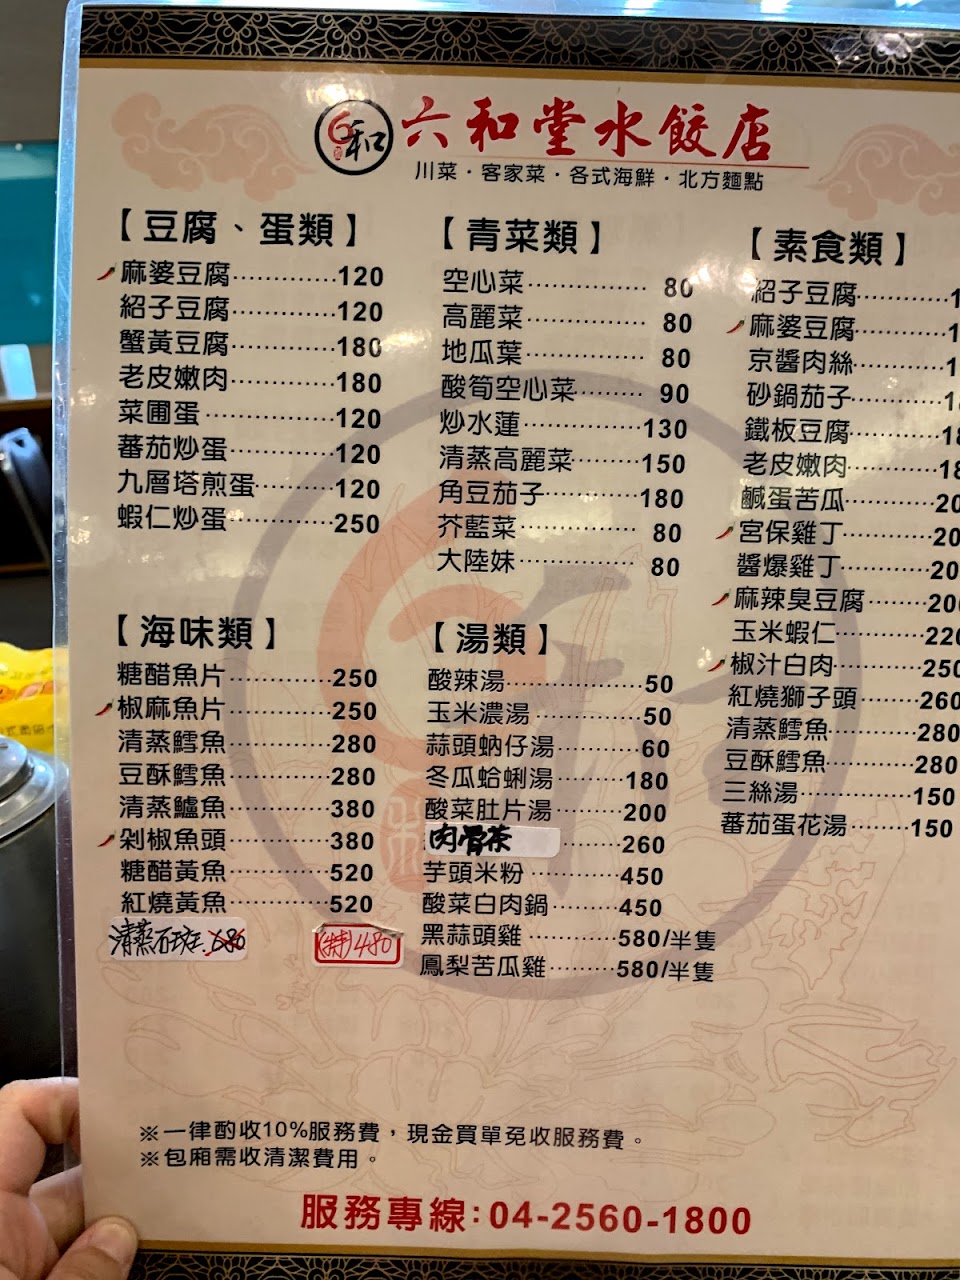 六和堂水餃店
川菜・客家菜・各式海鮮・北方麵點
【豆腐、蛋類】
麻婆豆腐············120
紹子豆腐············120
蟹黃豆腐············180
老皮嫩肉············180
菜圃蛋············120
蕃茄炒蛋············120
九層塔煎蛋·········120
蝦仁炒蛋············250
【海味類】
糖醋魚片············250
椒麻魚片············250
清蒸鱈魚············280
豆酥鱈魚············280
清蒸鱸魚············380
剁椒魚頭············380
糖醋黃魚············520
紅燒黃魚············520
清蒸石斑 680 (特)480
【青菜類】
空心菜············80
高麗菜············80
地瓜葉············80
酸筍空心菜·········90
炒水蓮············130
清蒸高麗菜·········150
角豆茄子············180
芥藍菜············80
大陸妹············80
【湯類】
酸辣湯············50
玉米濃湯············50
蒜頭蚋仔湯·········60
冬瓜蛤蜊湯·········180
酸菜肚片湯·········200
肉骨茶·········260
芋頭米粉············450
酸菜白肉鍋·········450
黑蒜頭雞·········580/半隻
鳳梨苦瓜雞·········580/半隻
【素食類】
紹子豆腐············1
麻婆豆腐············1
京醬肉絲············1
砂鍋茄子············18
鐵板豆腐············18
老皮嫩肉············18
鹹蛋苦瓜············20
宮保雞丁············20
醬爆雞丁············20
麻辣臭豆腐·········200
玉米蝦仁············220
椒汁白肉············250
紅燒獅子頭·········260
清蒸鱈魚············280
豆酥鱈魚············280
三絲湯············150
蕃茄蛋花湯·········150
※一律酌收10%服務費，現金買單免收服務費。
※包廂需收清潔費用。
服務專線:04-2560-1800